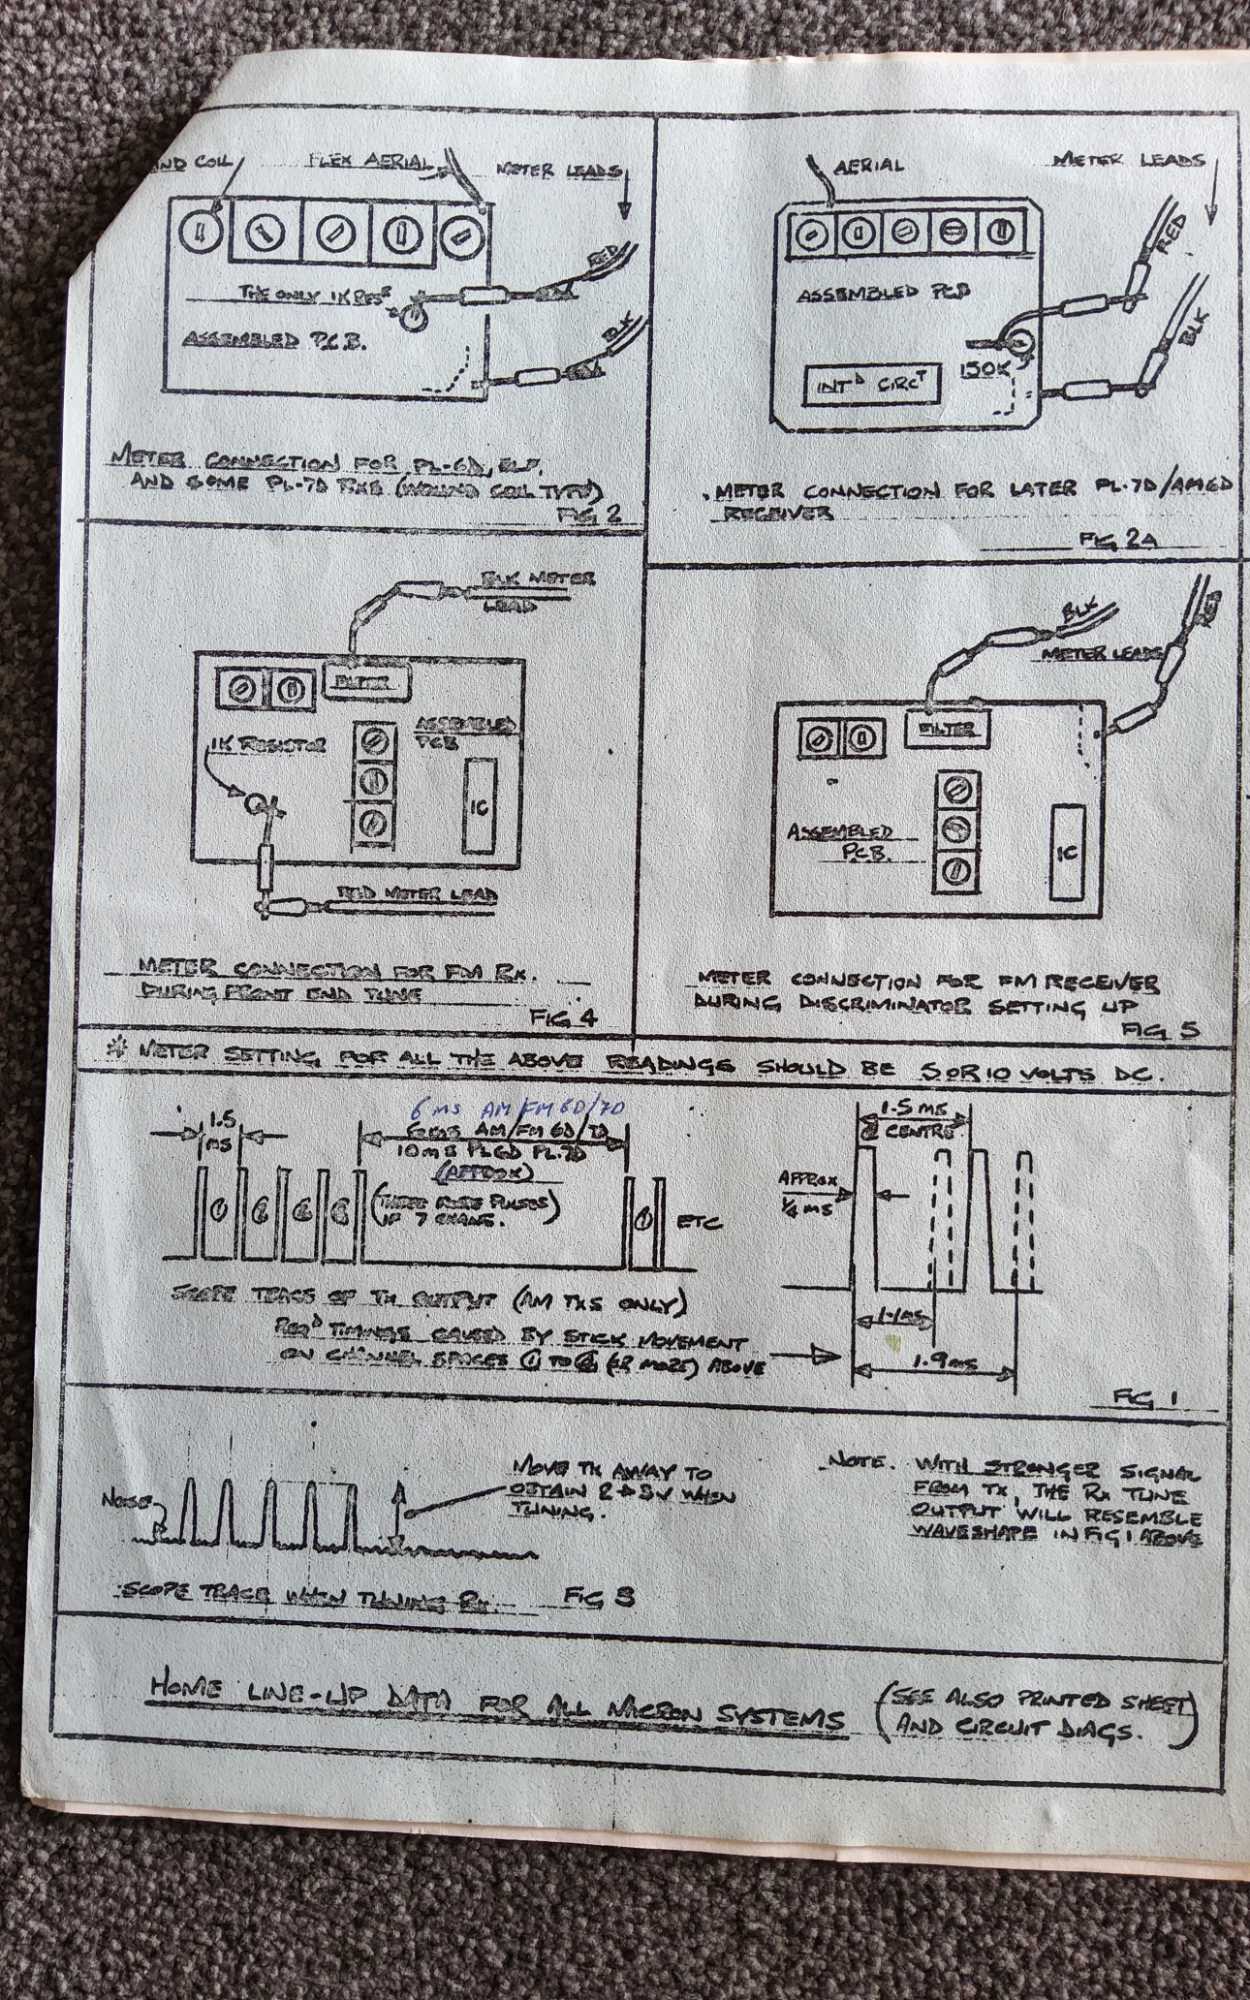 FLEX AERIAL
METER LEADS
RED
THE ONLY 1K RESR
ASSEMBLED P.C.B.
METER CONNECTION FOR PL-6D,
AND SOME PL-7D RXS (WOUND COIL TYPE)
FIG 2
AERIAL
METER LEADS
RED
BLK
ASSEMBLED PCB
150K
INTD CIRCT
METER CONNECTION FOR LATER PL-7D/AM6D
RECEIVER
FIG 2A
BLK METER
LEAD
FILTER
ASSEMBLED
PCB
1K RESISTOR
IC
RED METER LEAD
METER CONNECTION FOR FM RX.
DURING FRONT END TUNE
FIG 4
BLK
RED
METER LEADS
FILTER
ASSEMBLED
P.C.B.
IC
METER CONNECTION FOR FM RECEIVER
DURING DISCRIMINATOR SETTING UP
FIG 5
* METER SETTING, FOR ALL THE ABOVE READINGS SHOULD BE 5 OR 10 VOLTS DC.
1.5
MS
6 ms AM/FM 6D/7D
6 MS AM/FM 6D/7D
10 MS PL6D PL.7D
(APPROX)
(THREE MORE PULSES)
IF 7 CHANS.
1
1
ETC
SCOPE TRACE OF TX OUTPUT (AM TXS ONLY)
REQD TIMINGS CAUSED BY STICK MOVEMENT
ON CHANNEL SPACES 1 TO 4 (OR MORE) ABOVE
1.5 MS
@ CENTRE
APPROX
1/4 MS
1.1MS
1.9MS
FIG 1
NOISE
MOVE TX AWAY TO
OBTAIN 2→3V WHEN
TUNING.
SCOPE TRACE WHEN TUNING RX.
FIG 3
NOTE. WITH STRONGER SIGNAL
FROM TX, THE RX TUNE
OUTPUT WILL RESEMBLE
WAVESHAPE IN FIG 1 ABOVE
HOME LINE-UP DATA FOR ALL MICRON SYSTEMS
(SEE ALSO PRINTED SHEET
AND CIRCUIT DIAGS.)